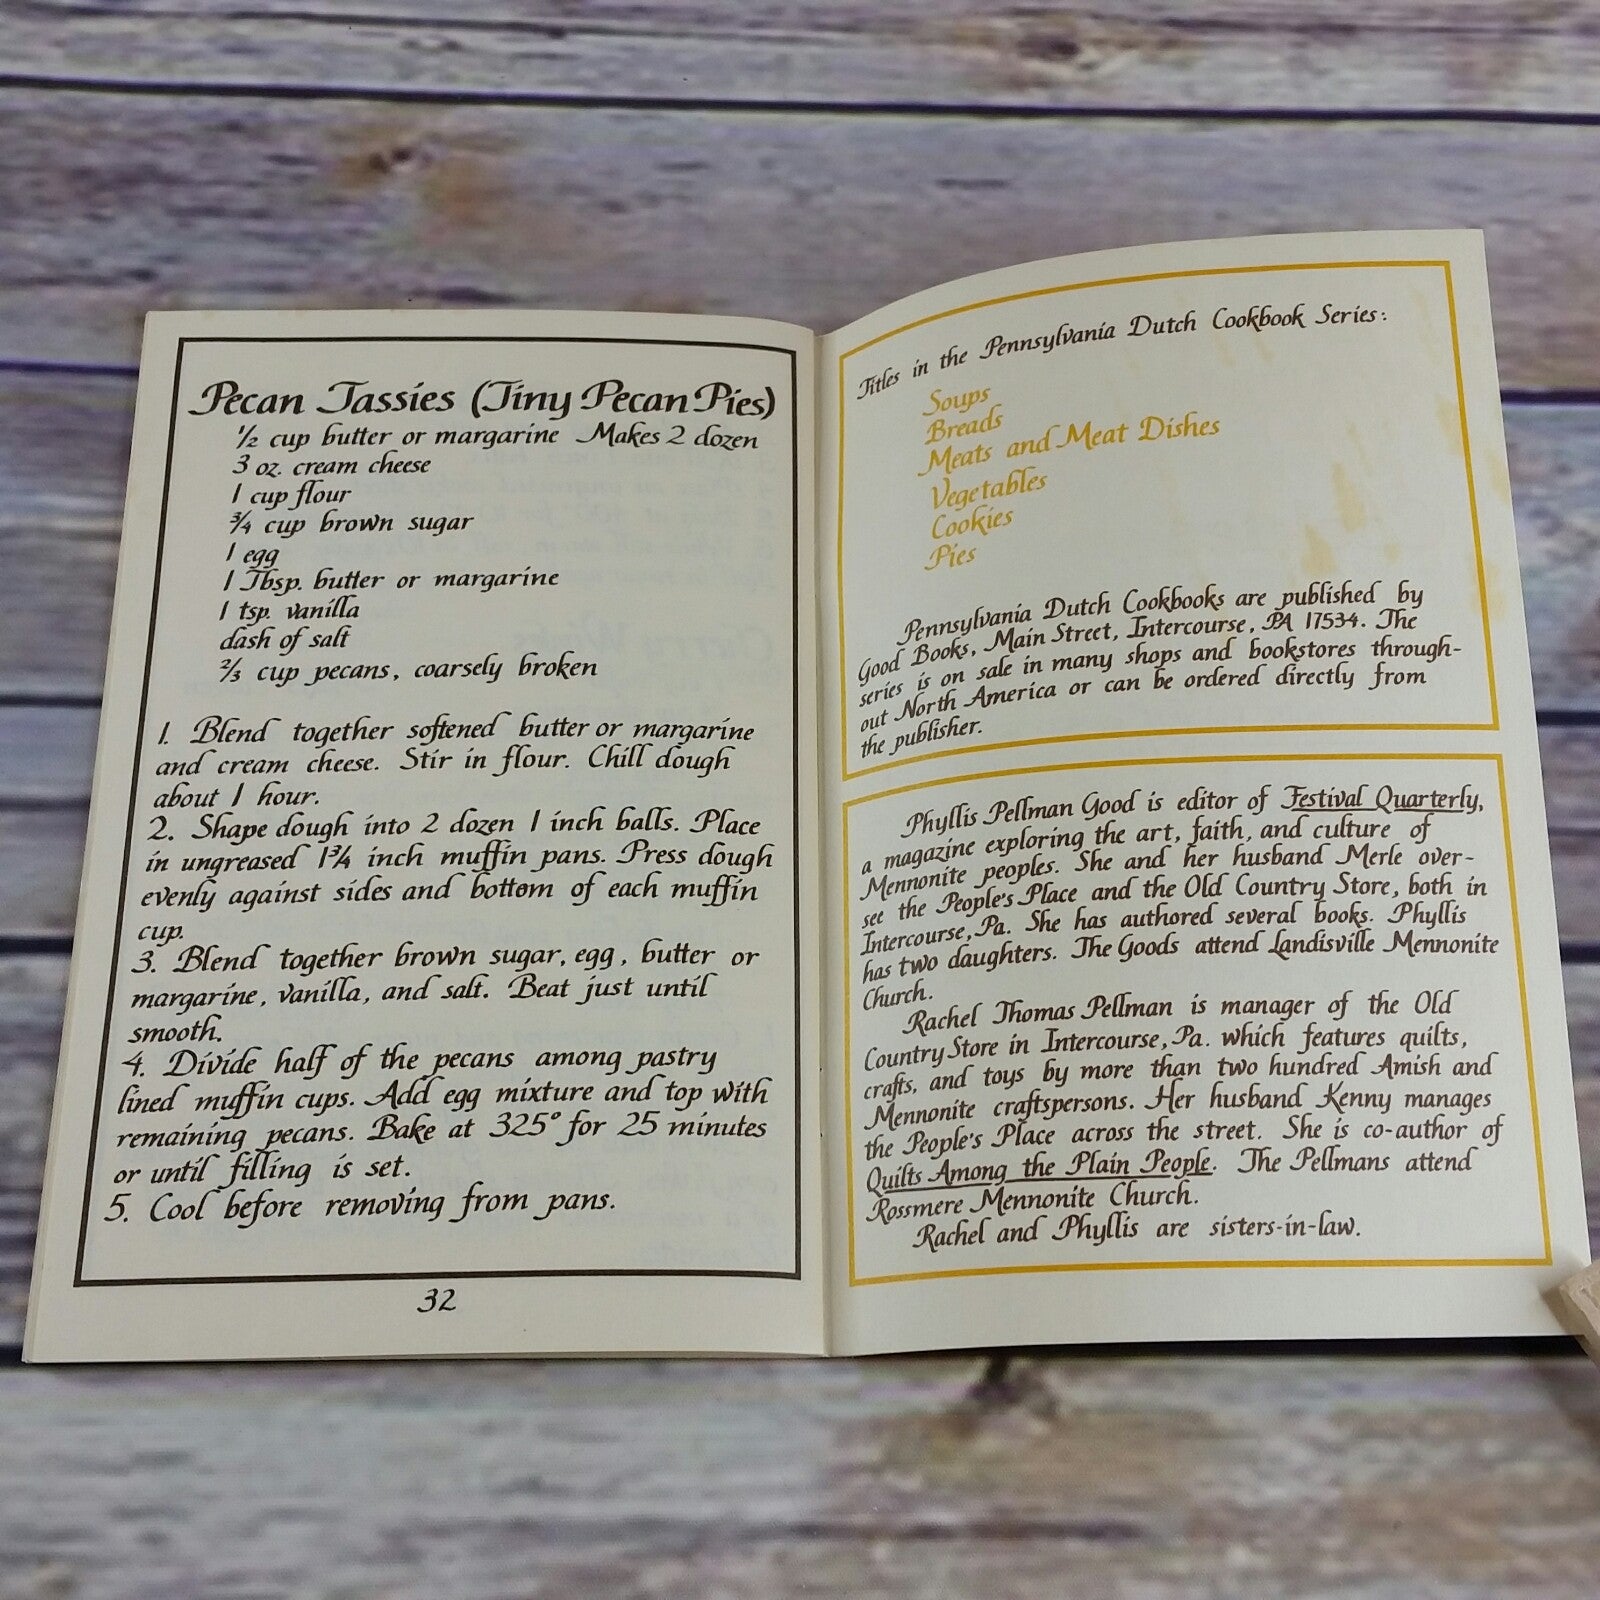 Pecan Tassies (Tiny Pecan Pies)
½ cup butter or margarine Makes 2 dozen
3 oz. cream cheese
1 cup flour
¾ cup brown sugar
1 egg
1 Tbsp. butter or margarine
1 tsp. vanilla
dash of salt
⅔ cup pecans, coarsely broken
1. Blend together softened butter or margarine
and cream cheese. Stir in flour. Chill dough
about 1 hour.
2. Shape dough into 2 dozen 1 inch balls. Place
in ungreased 1¾ inch muffin pans. Press dough
evenly against sides and bottom of each muffin
cup.
3. Blend together brown sugar, egg, butter or
margarine, vanilla, and salt. Beat just until
smooth.
4. Divide half of the pecans among pastry
lined muffin cups. Add egg mixture and top with
remaining pecans. Bake at 325° for 25 minutes
or until filling is set.
5. Cool before removing from pans.
32
Titles in the Pennsylvania Dutch Cookbook Series:
Soups
Breads
Meats and Meat Dishes
Vegetables
Cookies
Pies
Pennsylvania Dutch Cookbooks are published by
Good Books, Main Street, Intercourse, PA 17534. The
series is on sale in many shops and bookstores through-
out North America or can be ordered directly from
the publisher.
Phyllis Pellman Good is editor of Festival Quarterly,
a magazine exploring the art, faith, and culture of
Mennonite peoples. She and her husband Merle over-
see the People's Place and the Old Country Store, both in
Intercourse, Pa. She has authored several books. Phyllis
has two daughters. The Goods attend Landisville Mennonite
Church.
Rachel Thomas Pellman is manager of the Old
Country Store in Intercourse, Pa. which features quilts,
crafts, and toys by more than two hundred Amish and
Mennonite craftspersons. Her husband Kenny manages
the People's Place across the street. She is co-author of
Quilts Among the Plain People. The Pellmans attend
Rossmere Mennonite Church.
Rachel and Phyllis are sisters-in-law.